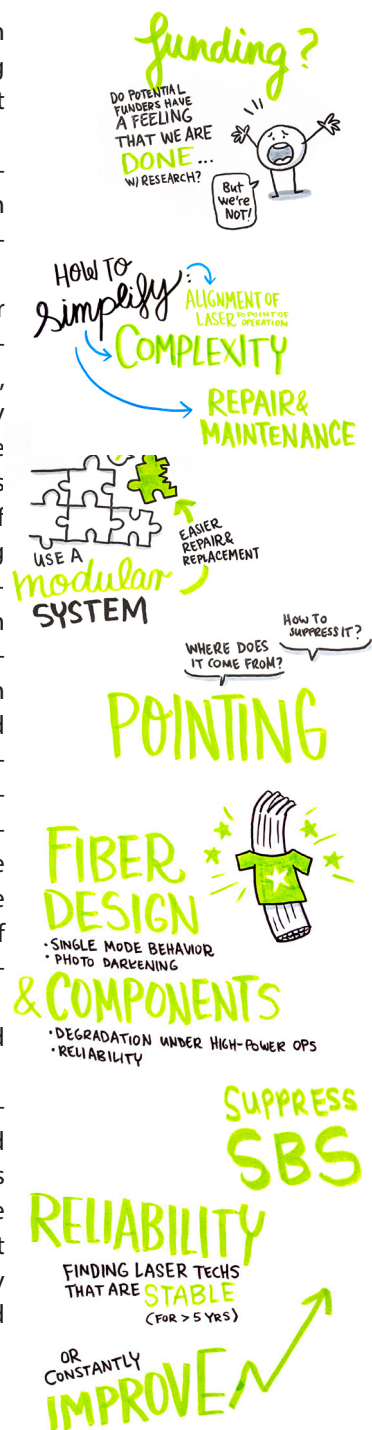 funding?
DO POTENTIAL
FUNDERS HAVE
A FEELING
THAT WE ARE
DONE...
W/ RESEARCH?
But
we're
NOT!
HOW TO
simplify:
ALIGNMENT OF
LASER TO POINT OF
OPERATION
COMPLEXITY
REPAIR &
MAINTENANCE
EASIER
REPAIR &
REPLACEMENT
USE A
modular
SYSTEM
HOW TO
SUPPRESS IT?
WHERE DOES
IT COME FROM?
POINTING
FIBER
DESIGN
· SINGLE MODE BEHAVIOR
· PHOTO DARKENING
& COMPONENTS
· DEGRADATION UNDER HIGH-POWER OPS
· RELIABILITY
SUPPRESS
SBS
RELIABILITY
FINDING LASER TECHS
THAT ARE STABLE
(FOR > 5 YRS)
OR
CONSTANTLY
IMPROVE